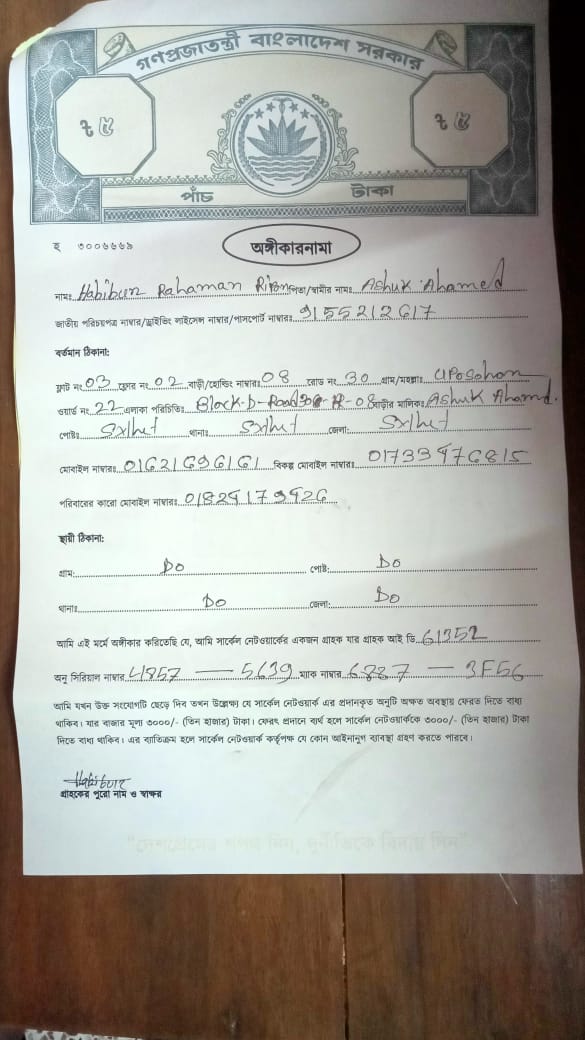 গণপ্রজাতন্ত্রী বাংলাদেশ সরকার
৳ ৫ ৳ ৫
পাঁচ টাকা
হ ৩০০৬৬৬৯
অঙ্গীকারনামা
নামঃ Habibur Rahaman Ripon পিতা/স্বামীর নামঃ Ashuk Ahamed
জাতীয় পরিচয়পত্র নাম্বার/ড্রাইভিং লাইসেন্স নাম্বার/পাসপোর্ট নাম্বারঃ 9155212617
বর্তমান ঠিকানা:
ফ্লাট নং 03 ফ্লোর নং 02 বাড়ী/হোল্ডিং নাম্বারঃ 08 রোড নং 30 গ্রাম/মহল্লাঃ UPoSohon
ওয়ার্ড নং 22 এলাকা পরিচিতিঃ Block-D-Road 30 H-08 বাড়ীর মালিকঃ Ashuk Ahamd.
পোষ্টঃ Sylhet থানাঃ Sylhet জেলা: Sylhet
মোবাইল নাম্বারঃ 01621696161 বিকল্প মোবাইল নাম্বারঃ 01733976815
পরিবারের কারো মোবাইল নাম্বারঃ 01829179926
স্থায়ী ঠিকানা:
গ্রাম: Do পোষ্ট: Do
থানাঃ Do জেলা: Do
আমি এই মর্মে অঙ্গীকার করিতেছি যে, আমি সার্কেল নেটওয়ার্কের একজন গ্রাহক যার গ্রাহক আই ডি 61352
অনু সিরিয়াল নাম্বার 4857 — 5639 ম্যাক নাম্বার 6887 — 3F56
আমি যখন উক্ত সংযোগটি ছেড়ে দিব তখন উল্লেক্ষ্য যে সার্কেল নেটওয়ার্ক এর প্রদানকৃত অনুটি অক্ষত অবস্থায় ফেরত দিতে বাধ্য
থাকিব। যার বাজার মূল্য ৩০০০/- (তিন হাজার) টাকা। ফেরৎ প্রদানে ব্যর্থ হলে সার্কেল নেটওয়ার্ককে ৩০০০/- (তিন হাজার) টাকা
দিতে বাধ্য থাকিব। এর ব্যতিক্রম হলে সার্কেল নেটওয়ার্ক কর্তৃপক্ষ যে কোন আইনানুগ ব্যাবস্থা গ্রহণ করতে পারবে।
Habibur
গ্রাহকের পুরো নাম ও স্বাক্ষর
"দেশপ্রেমের শপথ নিন, দুর্নীতিকে বিদায় দিন"